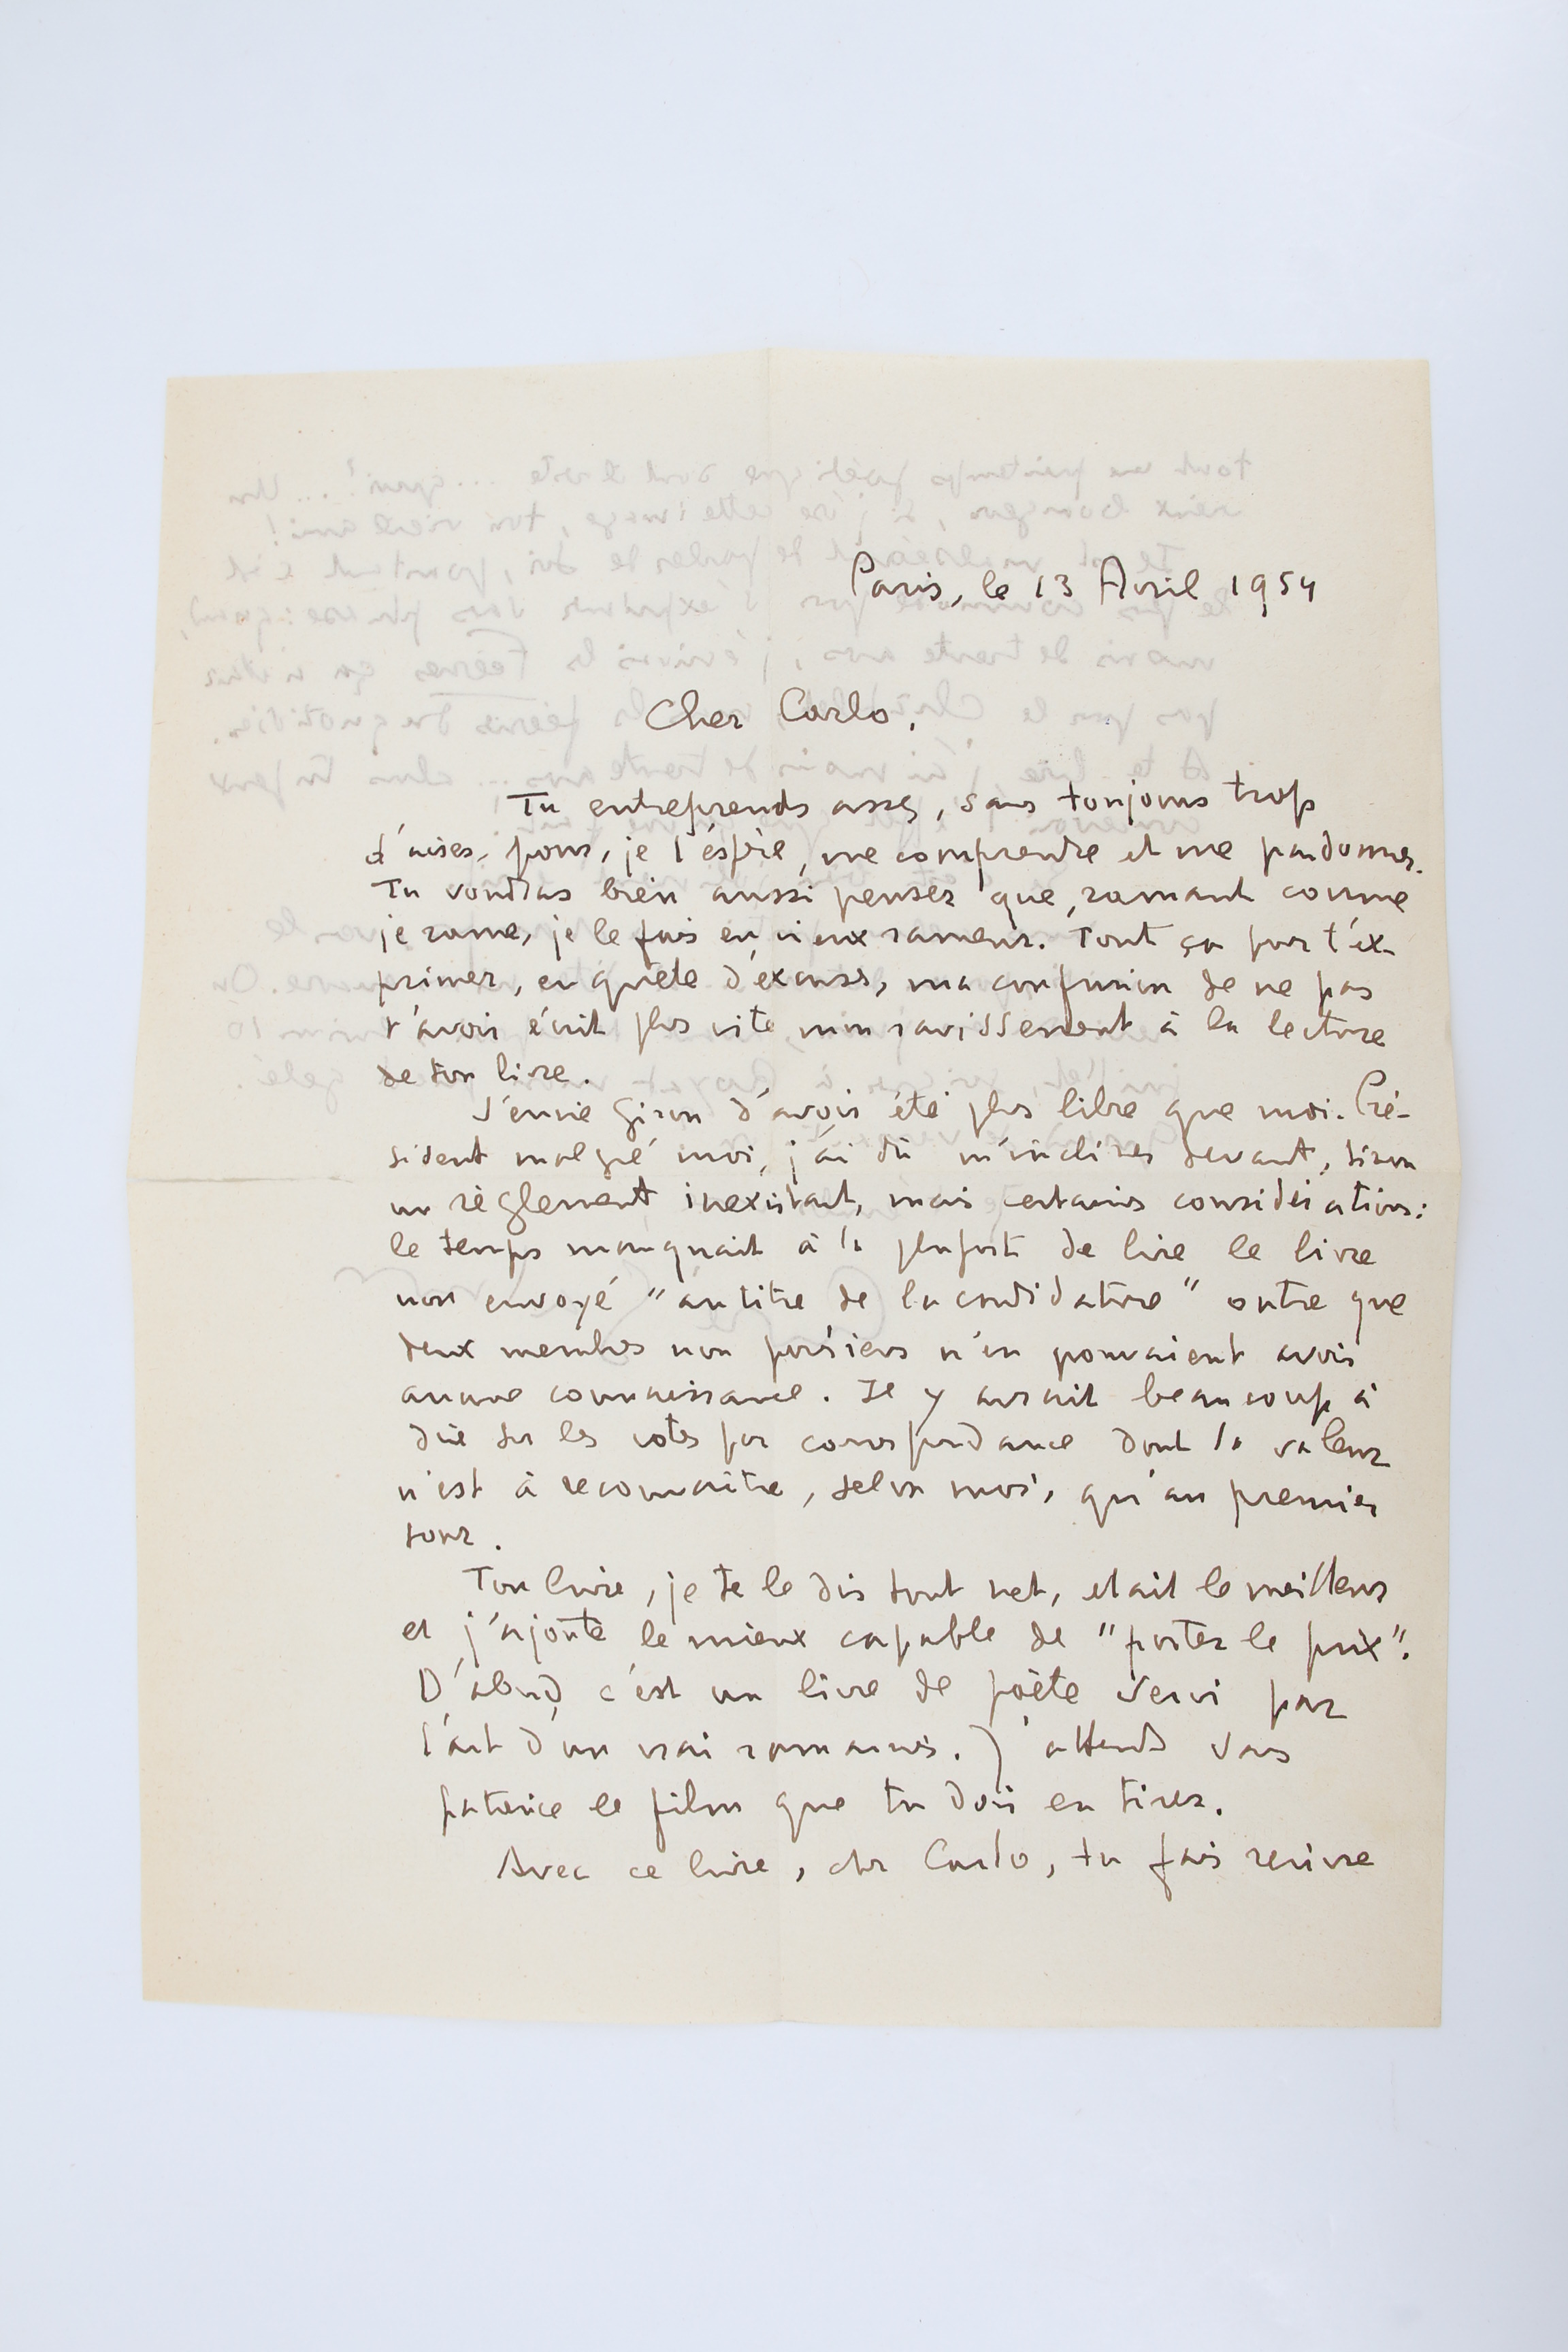 Paris, le 13 Avril 1954
Cher Carlo,
Tu entreprends assez, sans toujours trop
d'aises, pour, je l'éspère, me comprendre et me pardonner.
Tu voudras bien aussi penser que, ramant comme
je rame, je le fais en vieux rameur. Tout ça pour t'ex-
primer, en quête d'excuses, ma confusion de ne pas
t'avoir écrit plus vite mon ravissement à la lecture
de ton livre.
J'envie Giron d'avoir été plus libre que moi. Pré-
sident malgré moi, j'ai dû m'incliner devant, sinon
un règlement inexistant, mais certaines considérations:
le temps manquait à la plupart de lire le livre
non envoyé "au titre de la candidature" outre que
deux membres non parisiens n'en pouvaient avoir
aucune connaissance. Il y aurait beaucoup à
dire sur les votes par correspondance dont la valeur
n'est à reconnaître, selon moi, qu'au premier
tour.
Ton livre, je te le dis tout net, etait le meilleur
et j'ajoute le mieux capable de "porter le prix".
D'abord c'est un livre de poète servi par
l'art d'un vrai romancier. J'attends sans
patience le film que tu dois en tirer.
Avec ce livre, cher Carlo, tu fais revivre